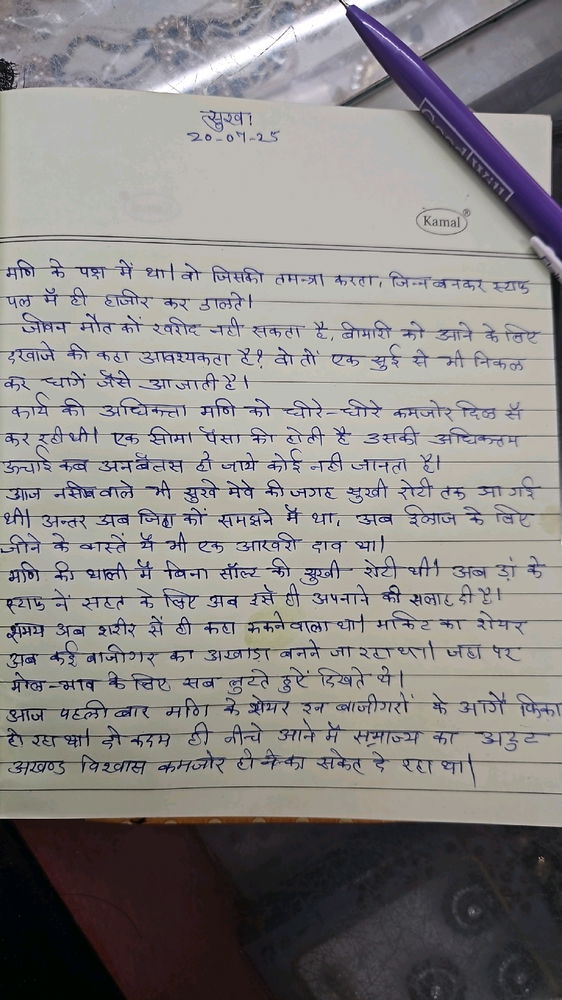 सुखा
20-07-25
Kamal®
GoodWill
मणि के पक्ष में था। वो जिसकी तमन्ना करता, जिन्न बनकर स्टाफ
पल में ही हाजीर कर डालते।
जीवन मौत कों खरीद नही सकता है, बीमारी को आने के लिए
दरवाजे की कहा आवश्यकता है? वो तों एक सुई से भी निकल
कर धागें जैसे आ जाती है।
कार्य की अधिकत्ता मणि को धीरे-धीरे कमजोर दिल सें
कर रही थी। एक सीमा पैसा की होती है उसकी अधिकतम
ऊचाई कब अनबैलस हो जाये कोई नही जानता है।
आज नसीब वाले भी सुखे मेवे की जगह सुखी रोटी तक आ गई
थी। अन्तर अब जिह्वा कों समझने में था, अब ईलाज के लिए
जीने के वास्तें यें भी एक आखरी दाव था।
मणि की थाली में बिना सॉल्ट की सुखी रोटी थी। अब डां के
स्टाफ नें सहत के लिए अब इसें ही अपनाने की सलाह दी है।
समय अब शरीर सें ही कहा रुकने वाला था। मार्किट का शेयर
अब कई बाजीगर का अखाड़ा बनने जा रहा था। जहा पर
मोल-भाव के लिए सब लुटते हुऐं दिखते थे।
आज पहली बार मणि के शेयर इन बाजीगरों के आगें फिका
हो रहा था। दो कदम ही नीचे आने में सम्राज्य का अटुट
अखण्ड विश्वास कमजोर होने का सकेत दे रहा था।